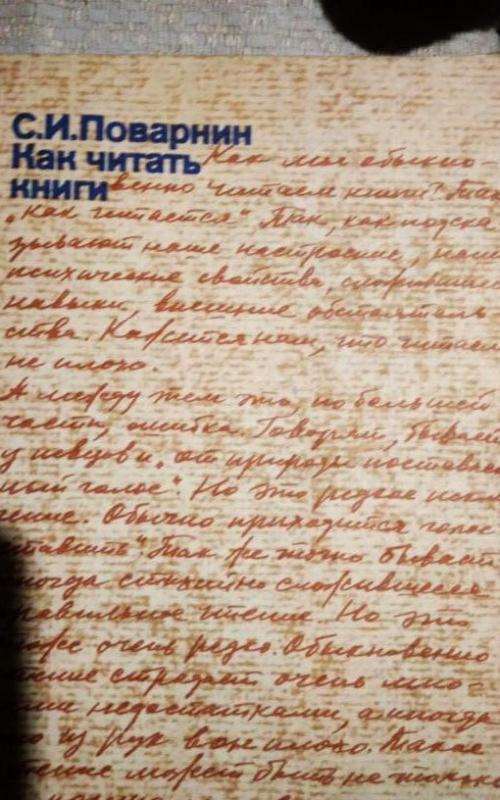 С.И.Поварнин
Как читать
книги
Как мы обыкно-
венно читаем книги? Так,
„как читается". Так, как подска
зывают наше настроение, наши
психические свойства, сложившиеся
навыки, внешние обстоятель
ства. Кажется нам, что читаем
не плохо.
А между тем это, по большей
части, ошибка. Говорят, бывает
у певцов и „от природы поставлен
ный голос". Но это редкое исклю
чение. Обычно приходится голос
ставить". Так же точно бывает
иногда стихийно сложившееся
правильное чтение. Но это
тоже очень редко. Обыкновенно
чтение страдает очень мно-
гими недостатками, а иногда
из рук вон плохо. Такое
чтение может быть не только